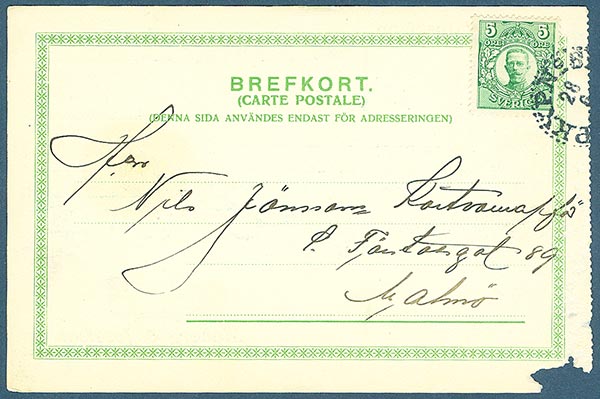 5 5
ÖRE ÖRE
SVERIGE
BREFKORT.
(CARTE POSTALE)
(DENNA SIDA ANVÄNDES ENDAST FÖR ADRESSERINGEN)
Herr
Nils Jönsson
89
Malmö